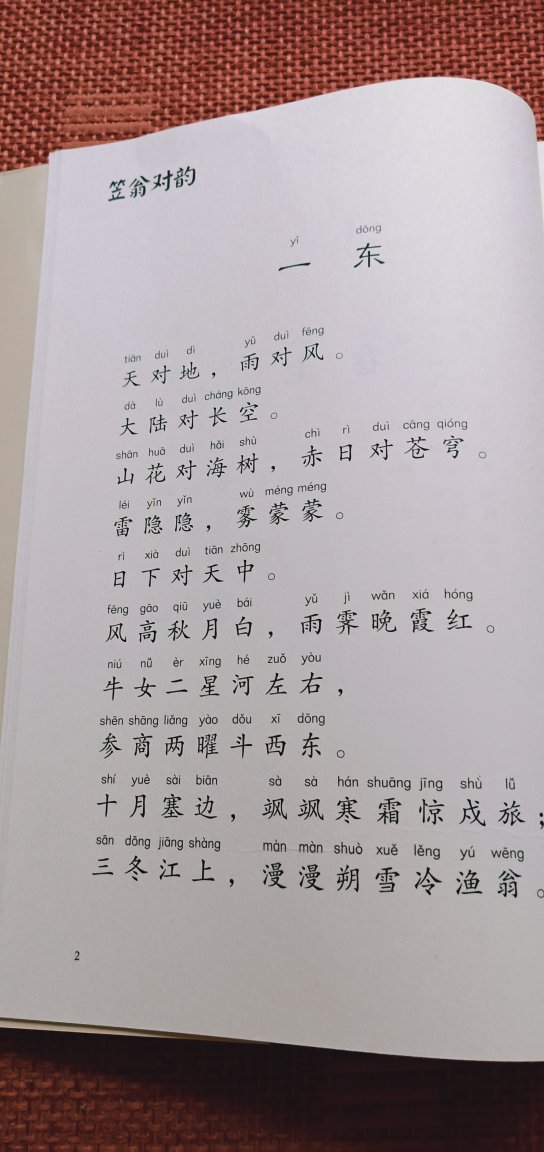 笠翁对韵
yī dōng
一 东
tiān duì dì yǔ duì fēng
天对地，雨对风。
dà lù duì cháng kōng
大陆对长空。
shān huā duì hǎi shù chì rì duì cāng qióng
山花对海树，赤日对苍穹。
léi yǐn yǐn wù méng méng
雷隐隐，雾蒙蒙。
rì xià duì tiān zhōng
日下对天中。
fēng gāo qiū yuè bái yǔ jì wǎn xiá hóng
风高秋月白，雨霁晚霞红。
niú nǚ èr xīng hé zuǒ yòu
牛女二星河左右，
shēn shāng liǎng yào dǒu xī dōng
参商两曜斗西东。
shí yuè sài biān sà sà hán shuāng jīng shù lǚ
十月塞边，飒飒寒霜惊戍旅；
sān dōng jiāng shàng màn màn shuò xuě lěng yú wēng
三冬江上，漫漫朔雪冷渔翁。
2